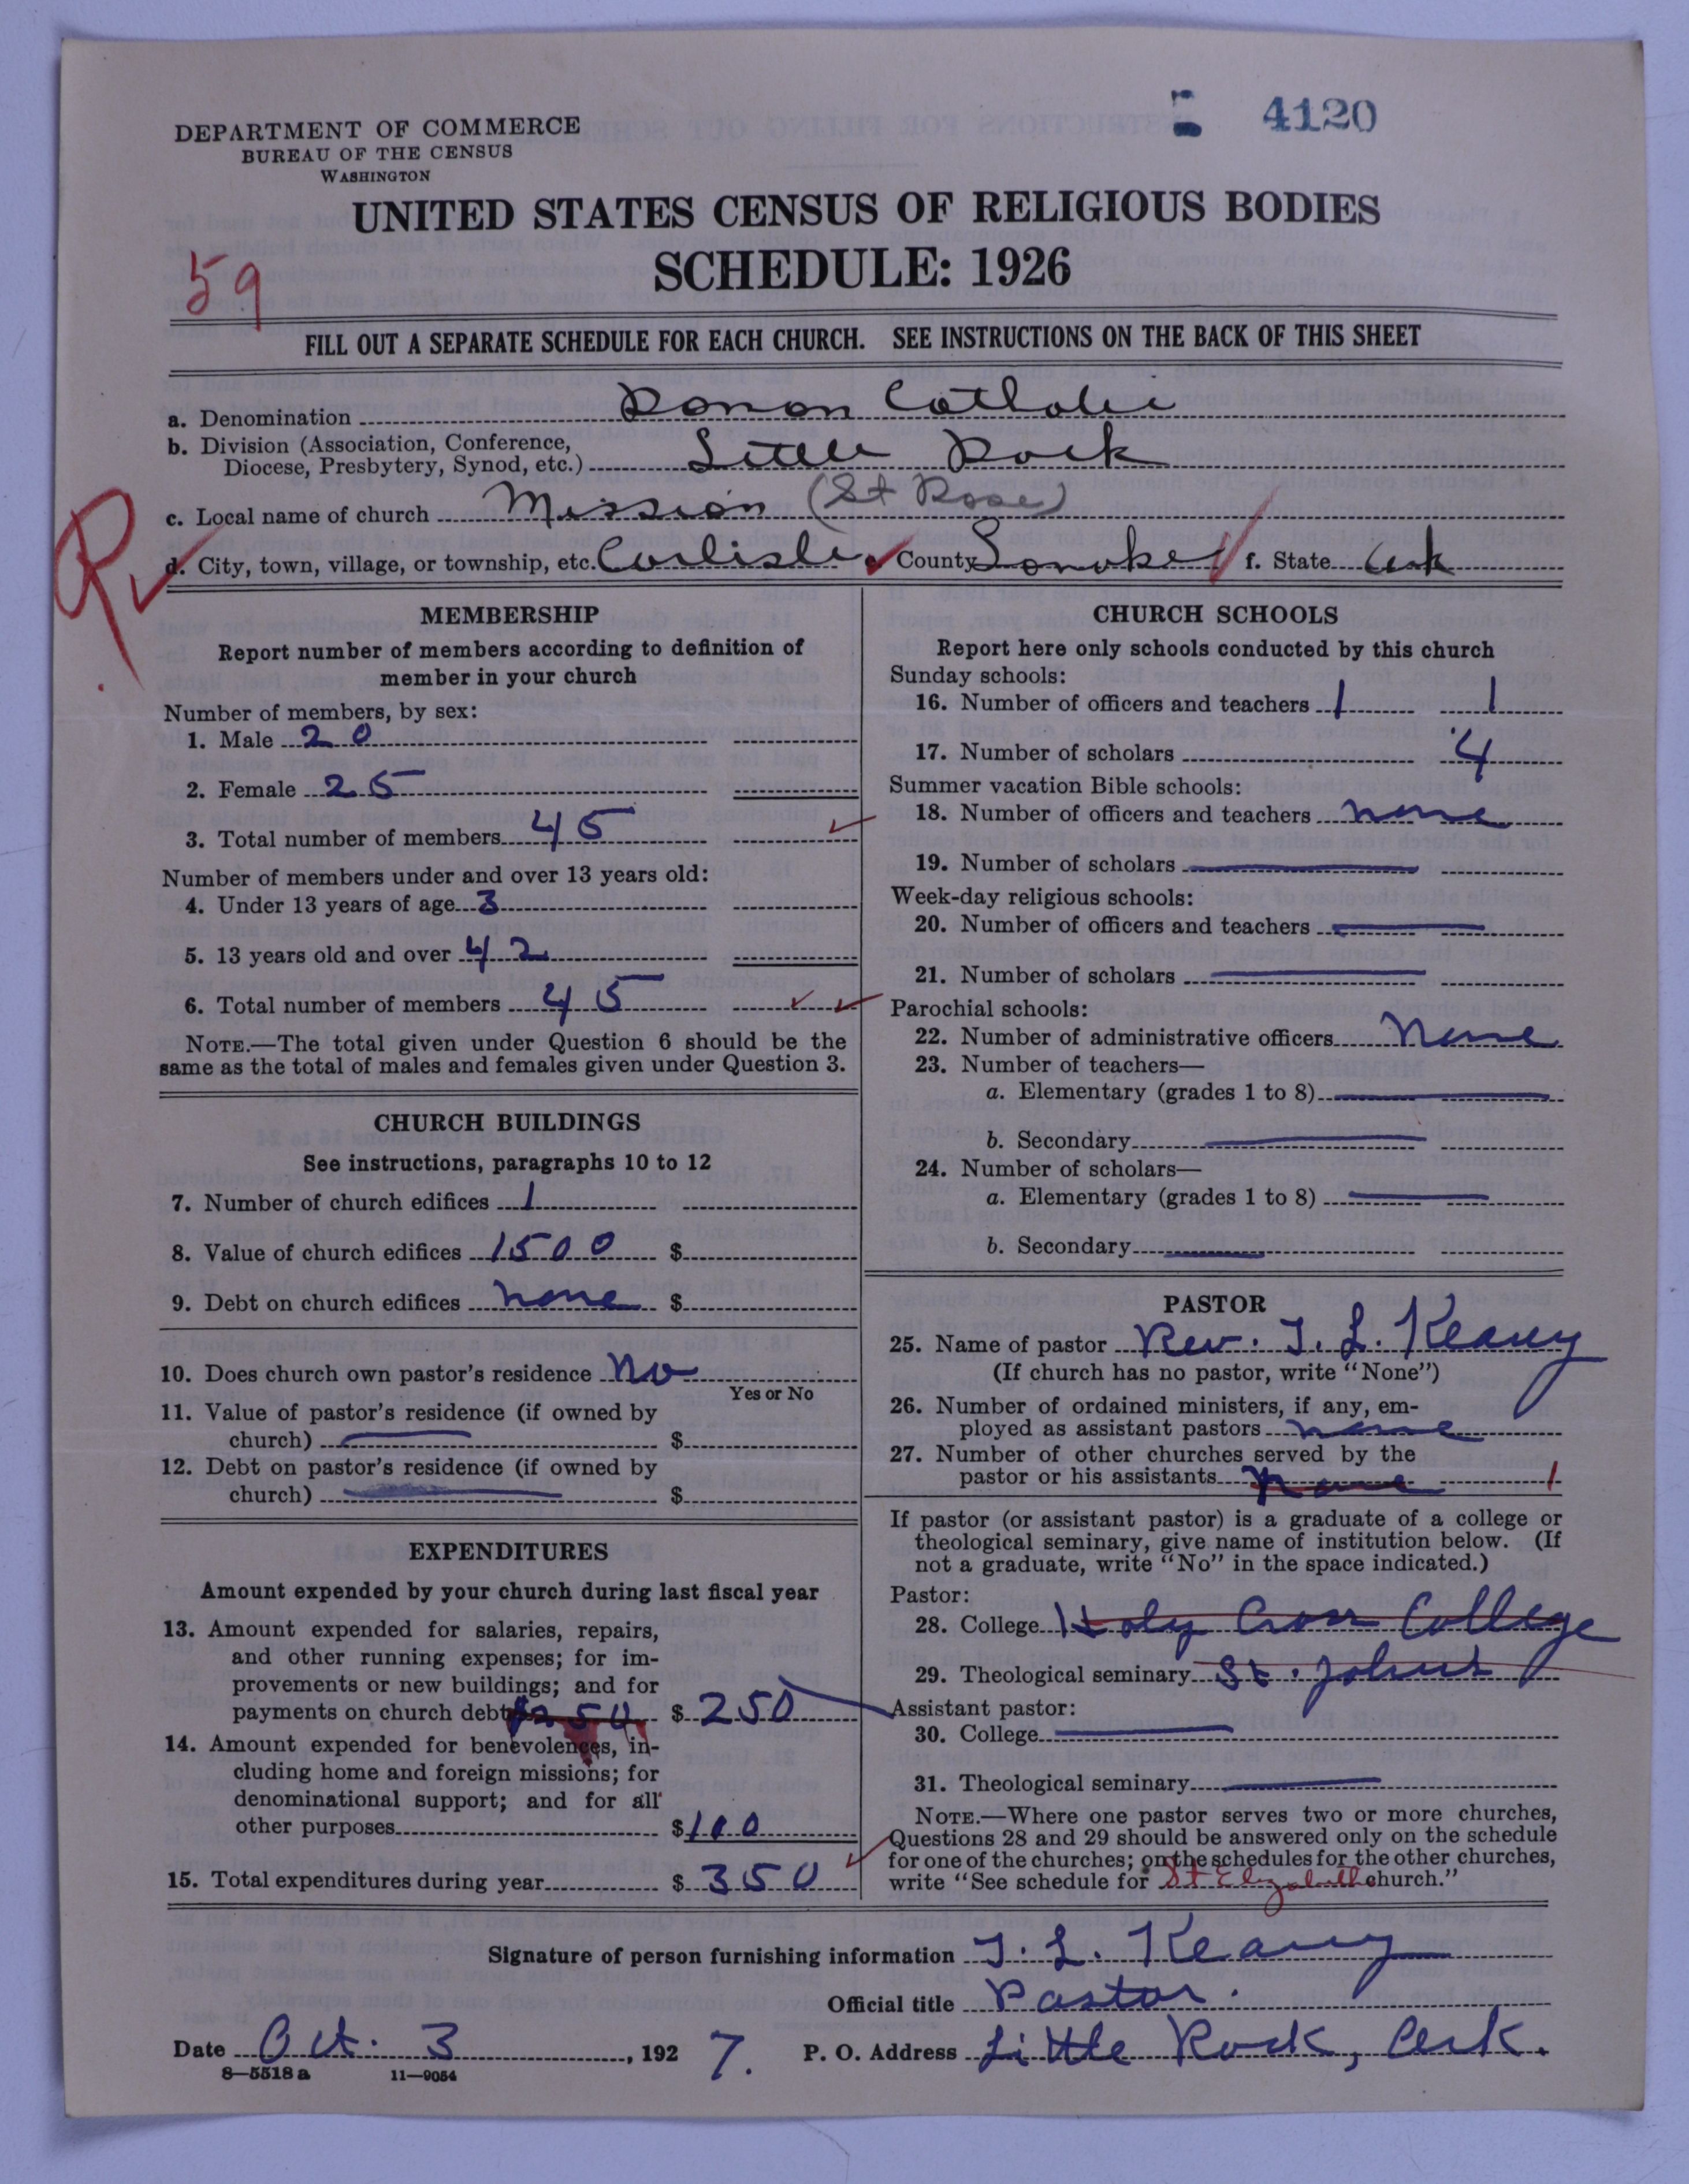 4120
DEPARTMENT OF COMMERCE
BUREAU OF THE CENSUS
WASHINGTON
UNITED STATES CENSUS OF RELIGIOUS BODIES
SCHEDULE: 1926
59
FILL OUT A SEPARATE SCHEDULE FOR EACH CHURCH. SEE INSTRUCTIONS ON THE BACK OF THIS SHEET
a. Denomination Roman Catholic
b. Division (Association, Conference,
Diocese, Presbytery, Synod, etc.) Little Rock
c. Local name of church Mission (St Rose)
d. City, town, village, or township, etc. Carlisle County Lonoke f. State Ark
R
MEMBERSHIP
Report number of members according to definition of
member in your church
Number of members, by sex:
1. Male 20
2. Female 25
3. Total number of members 45
Number of members under and over 13 years old:
4. Under 13 years of age 3
5. 13 years old and over 42
6. Total number of members 45
NOTE.—The total given under Question 6 should be the
same as the total of males and females given under Question 3.
CHURCH BUILDINGS
See instructions, paragraphs 10 to 12
7. Number of church edifices 1
8. Value of church edifices 1500 $
9. Debt on church edifices none $
10. Does church own pastor's residence No
Yes or No
11. Value of pastor's residence (if owned by
church) $
12. Debt on pastor's residence (if owned by
church) $
EXPENDITURES
Amount expended by your church during last fiscal year
13. Amount expended for salaries, repairs,
and other running expenses; for im-
provements or new buildings; and for
payments on church debt $250 $ 250
14. Amount expended for benevolences, in-
cluding home and foreign missions; for
denominational support; and for all
other purposes $ 100
15. Total expenditures during year $ 350
CHURCH SCHOOLS
Report here only schools conducted by this church
Sunday schools:
16. Number of officers and teachers 1 1
17. Number of scholars 4
Summer vacation Bible schools:
18. Number of officers and teachers none
19. Number of scholars
Week-day religious schools:
20. Number of officers and teachers
21. Number of scholars
Parochial schools:
22. Number of administrative officers None
23. Number of teachers—
a. Elementary (grades 1 to 8)
b. Secondary
24. Number of scholars—
a. Elementary (grades 1 to 8)
b. Secondary
PASTOR
25. Name of pastor Rev. T. L. Keany
(If church has no pastor, write "None")
26. Number of ordained ministers, if any, em-
ployed as assistant pastors none
27. Number of other churches served by the
pastor or his assistants none 1
If pastor (or assistant pastor) is a graduate of a college or
theological seminary, give name of institution below. (If
not a graduate, write "No" in the space indicated.)
Pastor:
28. College Holy Cross College
29. Theological seminary St. Johns
Assistant pastor:
30. College
31. Theological seminary
NOTE.—Where one pastor serves two or more churches,
Questions 28 and 29 should be answered only on the schedule
for one of the churches; on the schedules for the other churches,
write "See schedule for St Elizabeth church."
Signature of person furnishing information T. L. Keany
Official title Pastor.
Date Oct. 3, 1927. P. O. Address Little Rock, Ark.
8—5518 a 11—9054